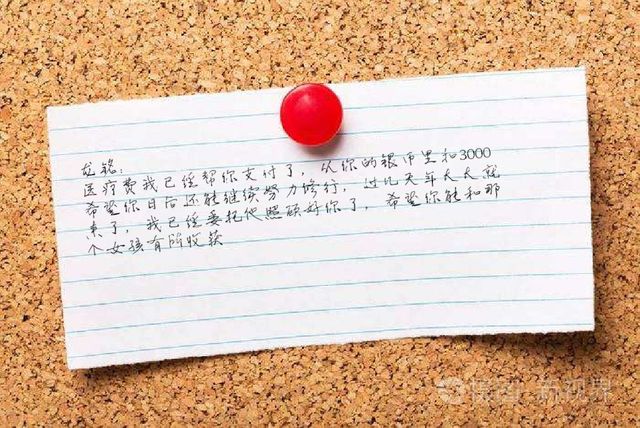 龙铭：
医疗费我已经帮你支付了，从你的银币里和3000
希望你日后还能继续努力修行，过几天年天天就
来了，我已经委托他照顾好你了，希望你能和那
个女孩有所收获
摄图·新视界